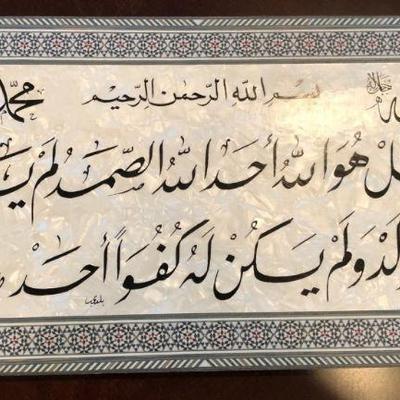 بِسْمِ اللهِ الرَّحْمٰنِ الرَّحِيْمِ
محمد
لْ هُوَ اللهُ أَحَد اللهُ الصَّمَدُ لَمْ يَـ
لَدْ وَلَمْ يَكُنْ لَهُ كُفُوًا أَحَدْ